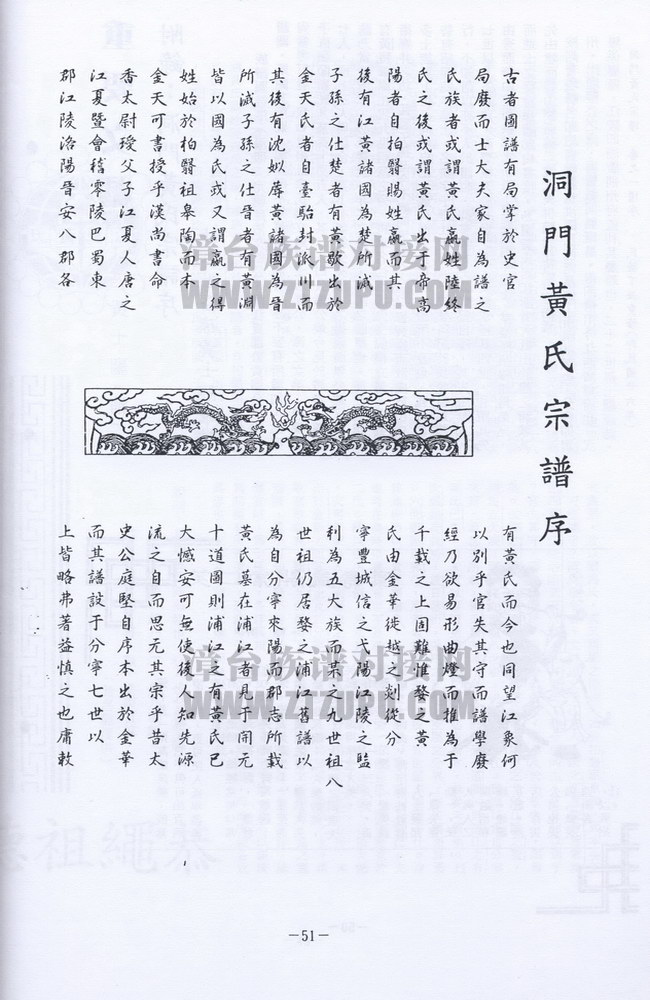 洞門黃氏宗譜序
古者圖譜有局掌於史官
局廢而士大夫家自為譜之
氏族者或謂黃氏嬴姓陸終
氏之後或謂黃氏出于帝高
陽者自拍翳賜姓嬴而其
後有江黃諸國為楚所滅
子孫之仕楚者有黃歇出於
金天氏者自臺駘封汾川而
其後有沈姒蓐黃諸國為晉
所滅子孫之仕晉者有黃淵
皆以國為氏或又謂嬴之得
姓始於柏翳祖皋陶而本
金天可書授乎漢尚書令
香太尉瓊父子江夏人唐之
江夏暨會稽零陵巴蜀東
郡江陵洛陽晉安八郡各
有黃氏而今也同望江夏何
以別乎官失其守而譜學廢
經乃欲易形曲燈而推為于
千載之上固難惟婺之黃
氏由金華徙越之剡從分
寧豐城信之弋陽江陵之監
利為五大族而某之九世祖八
世祖仍居婺之浦江舊譜以
為自分寧來陽而郡志所載
黃氏墓在浦江者見于開元
十道圖則浦江之有黃氏已
大憾安可無使後人知先源
流之自而思元其宗乎昔太
史公庭堅自序本出於金華
而其譜設于分寧七世以
上皆略弗著益慎之也庸敕
漳台族谱对接网
WWW.ZTZUPU.COM
漳台族谱对接网
WWW.ZTZUPU.COM
－51－